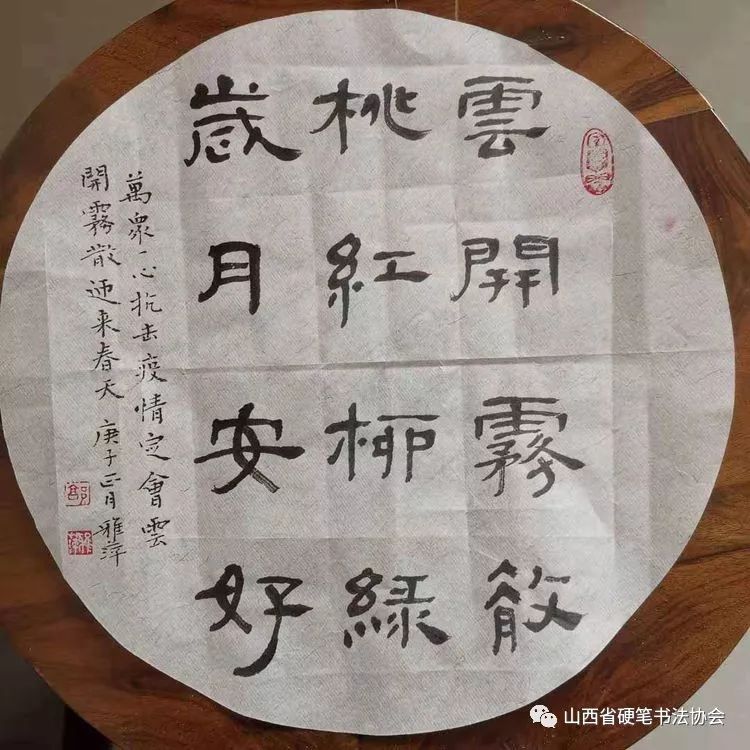 雲開霧散
桃紅柳緑
歲月安好
萬眾一心抗击疫情定會雲
開霧散迎来春天 庚子正月 雅萍
山西省硬笔书法协会